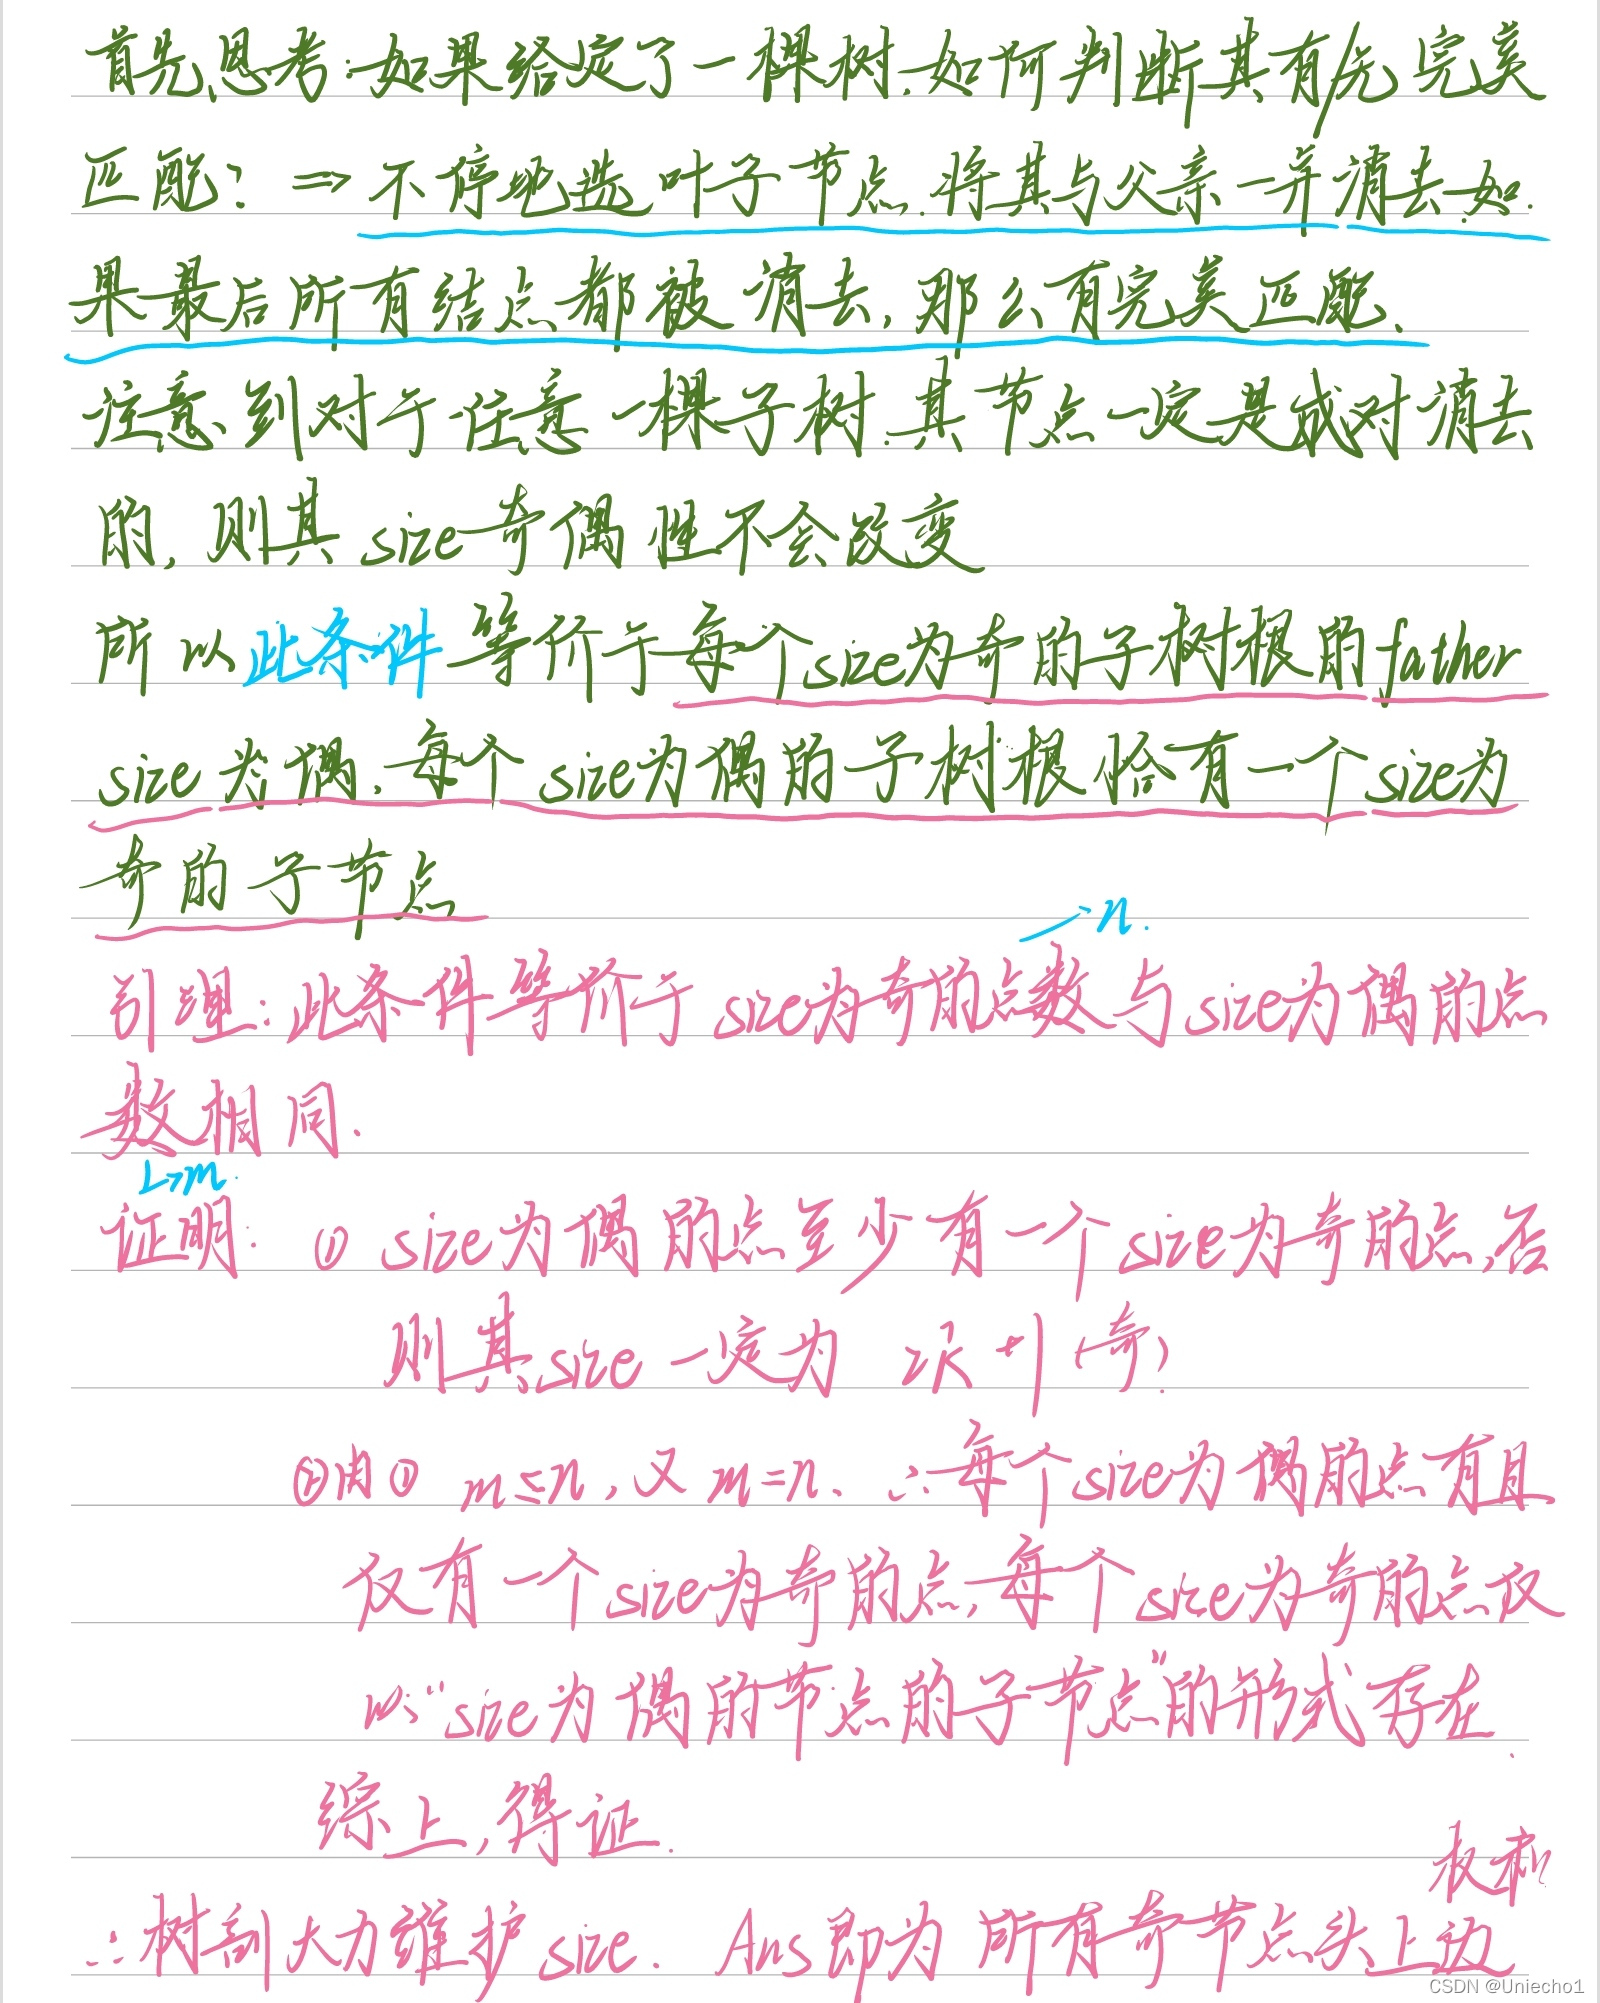 首先思考:如果给定了一棵树,如何判断其有/无完美
匹配? ⇒ 不停地选叶子节点,将其与父亲一并消去,如
果最后所有结点都被消去,那么有完美匹配.
注意到对于任意一棵子树,其节点一定是成对消去
的,则其size奇偶性不会改变
所以此条件等价于每个size为奇的子树根的father
size为偶,每个size为偶的子树根恰有一个size为
奇的子节点
→n.
引理:此条件等价于size为奇的点数与size为偶的点
数相同.
↳m.
证明: ① size为偶的点至少有一个size为奇的点,否
则其size一定为 2k+1(奇)
②由① m≤n,又m=n. ∴每个size为偶的点有且
仅有一个size为奇的点,每个size为奇的点仅
以"size为偶的节点的子节点"的形式存在.
综上,得证.
权和
∴树剖大力维护size. Ans即为所有奇节点头上边
CSDN @Uniecho1